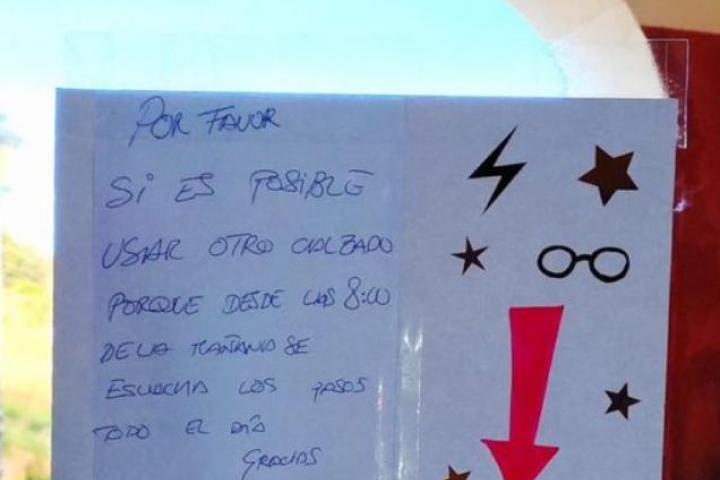 POR FAVOR
Si ES POSiBLE
USAR OTRO CALZADO
PORQUE DESDE LAS 8:00
DE LA MAÑANA SE
ESCUCHA LOS PASOS
TODO EL DÍA
GRACIAS